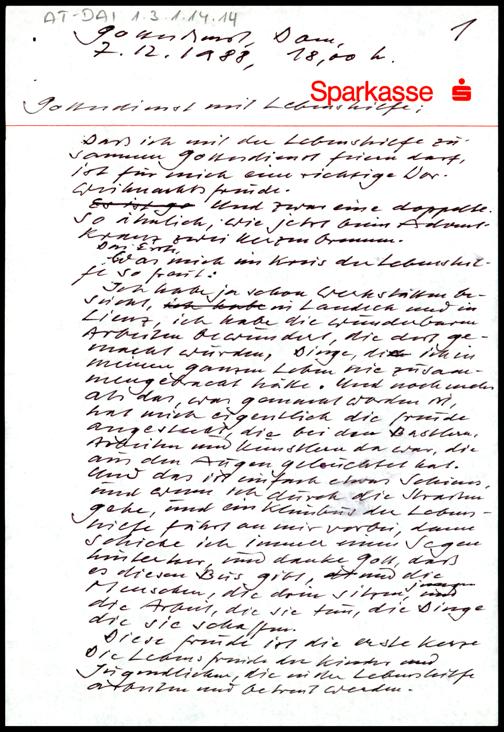 AT-DAI 1.3.1.14.14
Gottesdienst, Dom,
7.12.1988, 18,00 h.
1
Sparkasse
Gottesdienst mit Lebenshilfe:
Daß ich mit der Lebenshilfe zu-
sammen Gottesdienst feiern darf,
ist für mich eine richtige Vor-
weihnachtsfreude.
Es ist ge Und zwar eine doppelte.
So ähnlich, wie jetzt beim Advent-
kranz zwei Kerzen brennen.
Das Erste,
Was mich im Kreis der Lebenshil-
fe so freut:
Ich habe ja schon Werkstätten be-
sucht, ich habe in Landeck und in
Lienz, ich habe die wunderbaren
Arbeiten bewundert, die dort ge-
macht wurden, Dinge, die ich in
meinem ganzen Leben nie zusam-
mengebracht hätte. Und noch mehr
als das, was gemacht worden ist,
hat mich eigentlich die Freude
angesteckt, die bei den Bastlern,
Arbeitern und Künstlern da war, die
aus den Augen geleuchtet hat.
Und das ist einfach etwas Schönes,
und wenn ich durch die Straßen
gehe, und ein Kleinbus der Lebens-
hilfe fährt an mir vorbei, dann
schicke ich immer einen Segen
hinterher, und danke Gott, daß
es diesen Bus gibt, und die jungen
Menschen, die drin sitzen, und
die Arbeit, die sie tun, die Dinge
die sie schaffen.
Diese Freude ist die erste Kerze
Die Lebensfreude der Kinder und
Jugendlichen, die in der Lebenshilfe
arbeiten und betreut werden.